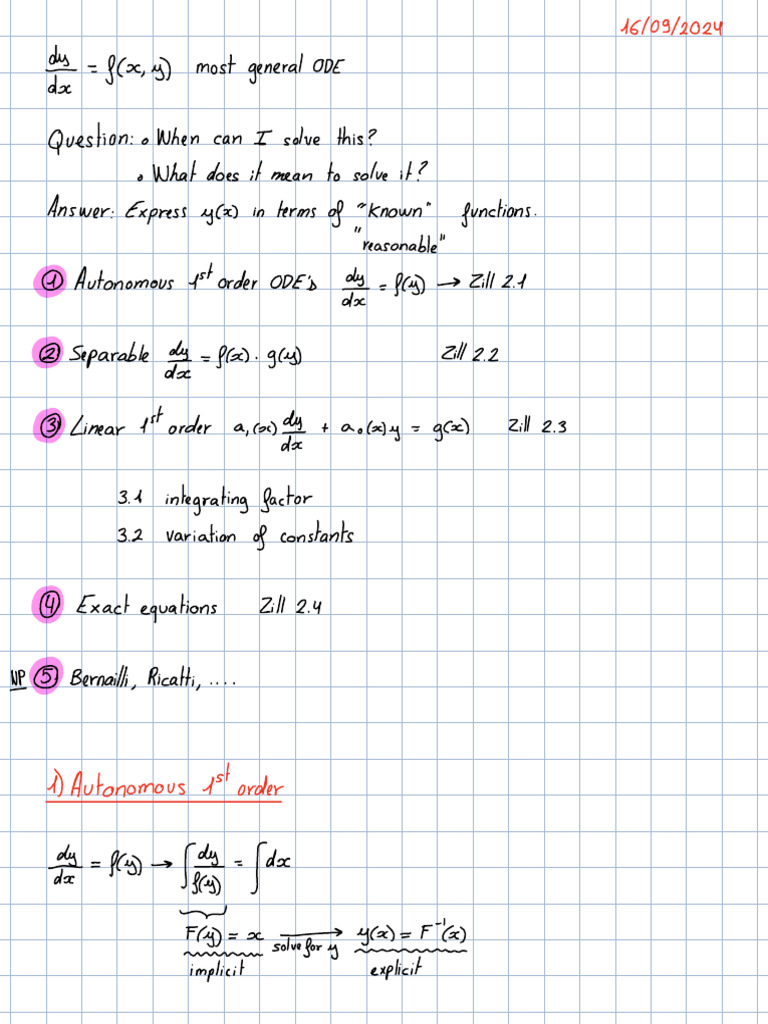 16/09/2024
dy/dx = f(x, y) most general ODE
Question: • When can I solve this?
• What does it mean to solve it?
Answer: Express y(x) in terms of "Known" functions.
"reasonable"
① Autonomous 1st order ODE's dy/dx = f(y) → Zill 2.1
② Separable dy/dx = f(x) · g(y) Zill 2.2
③ Linear 1st order a₁(x) dy/dx + a₀(x)y = g(x) Zill 2.3
3.1 integrating factor
3.2 variation of constants
④ Exact equations Zill 2.4
NP ⑤ Bernailli, Ricatti, ....
1) Autonomous 1st order
dy/dx = f(y) → ∫ dy/f(y) = ∫ dx
F(y) = x solve for y → y(x) = F⁻¹(x)
implicit explicit